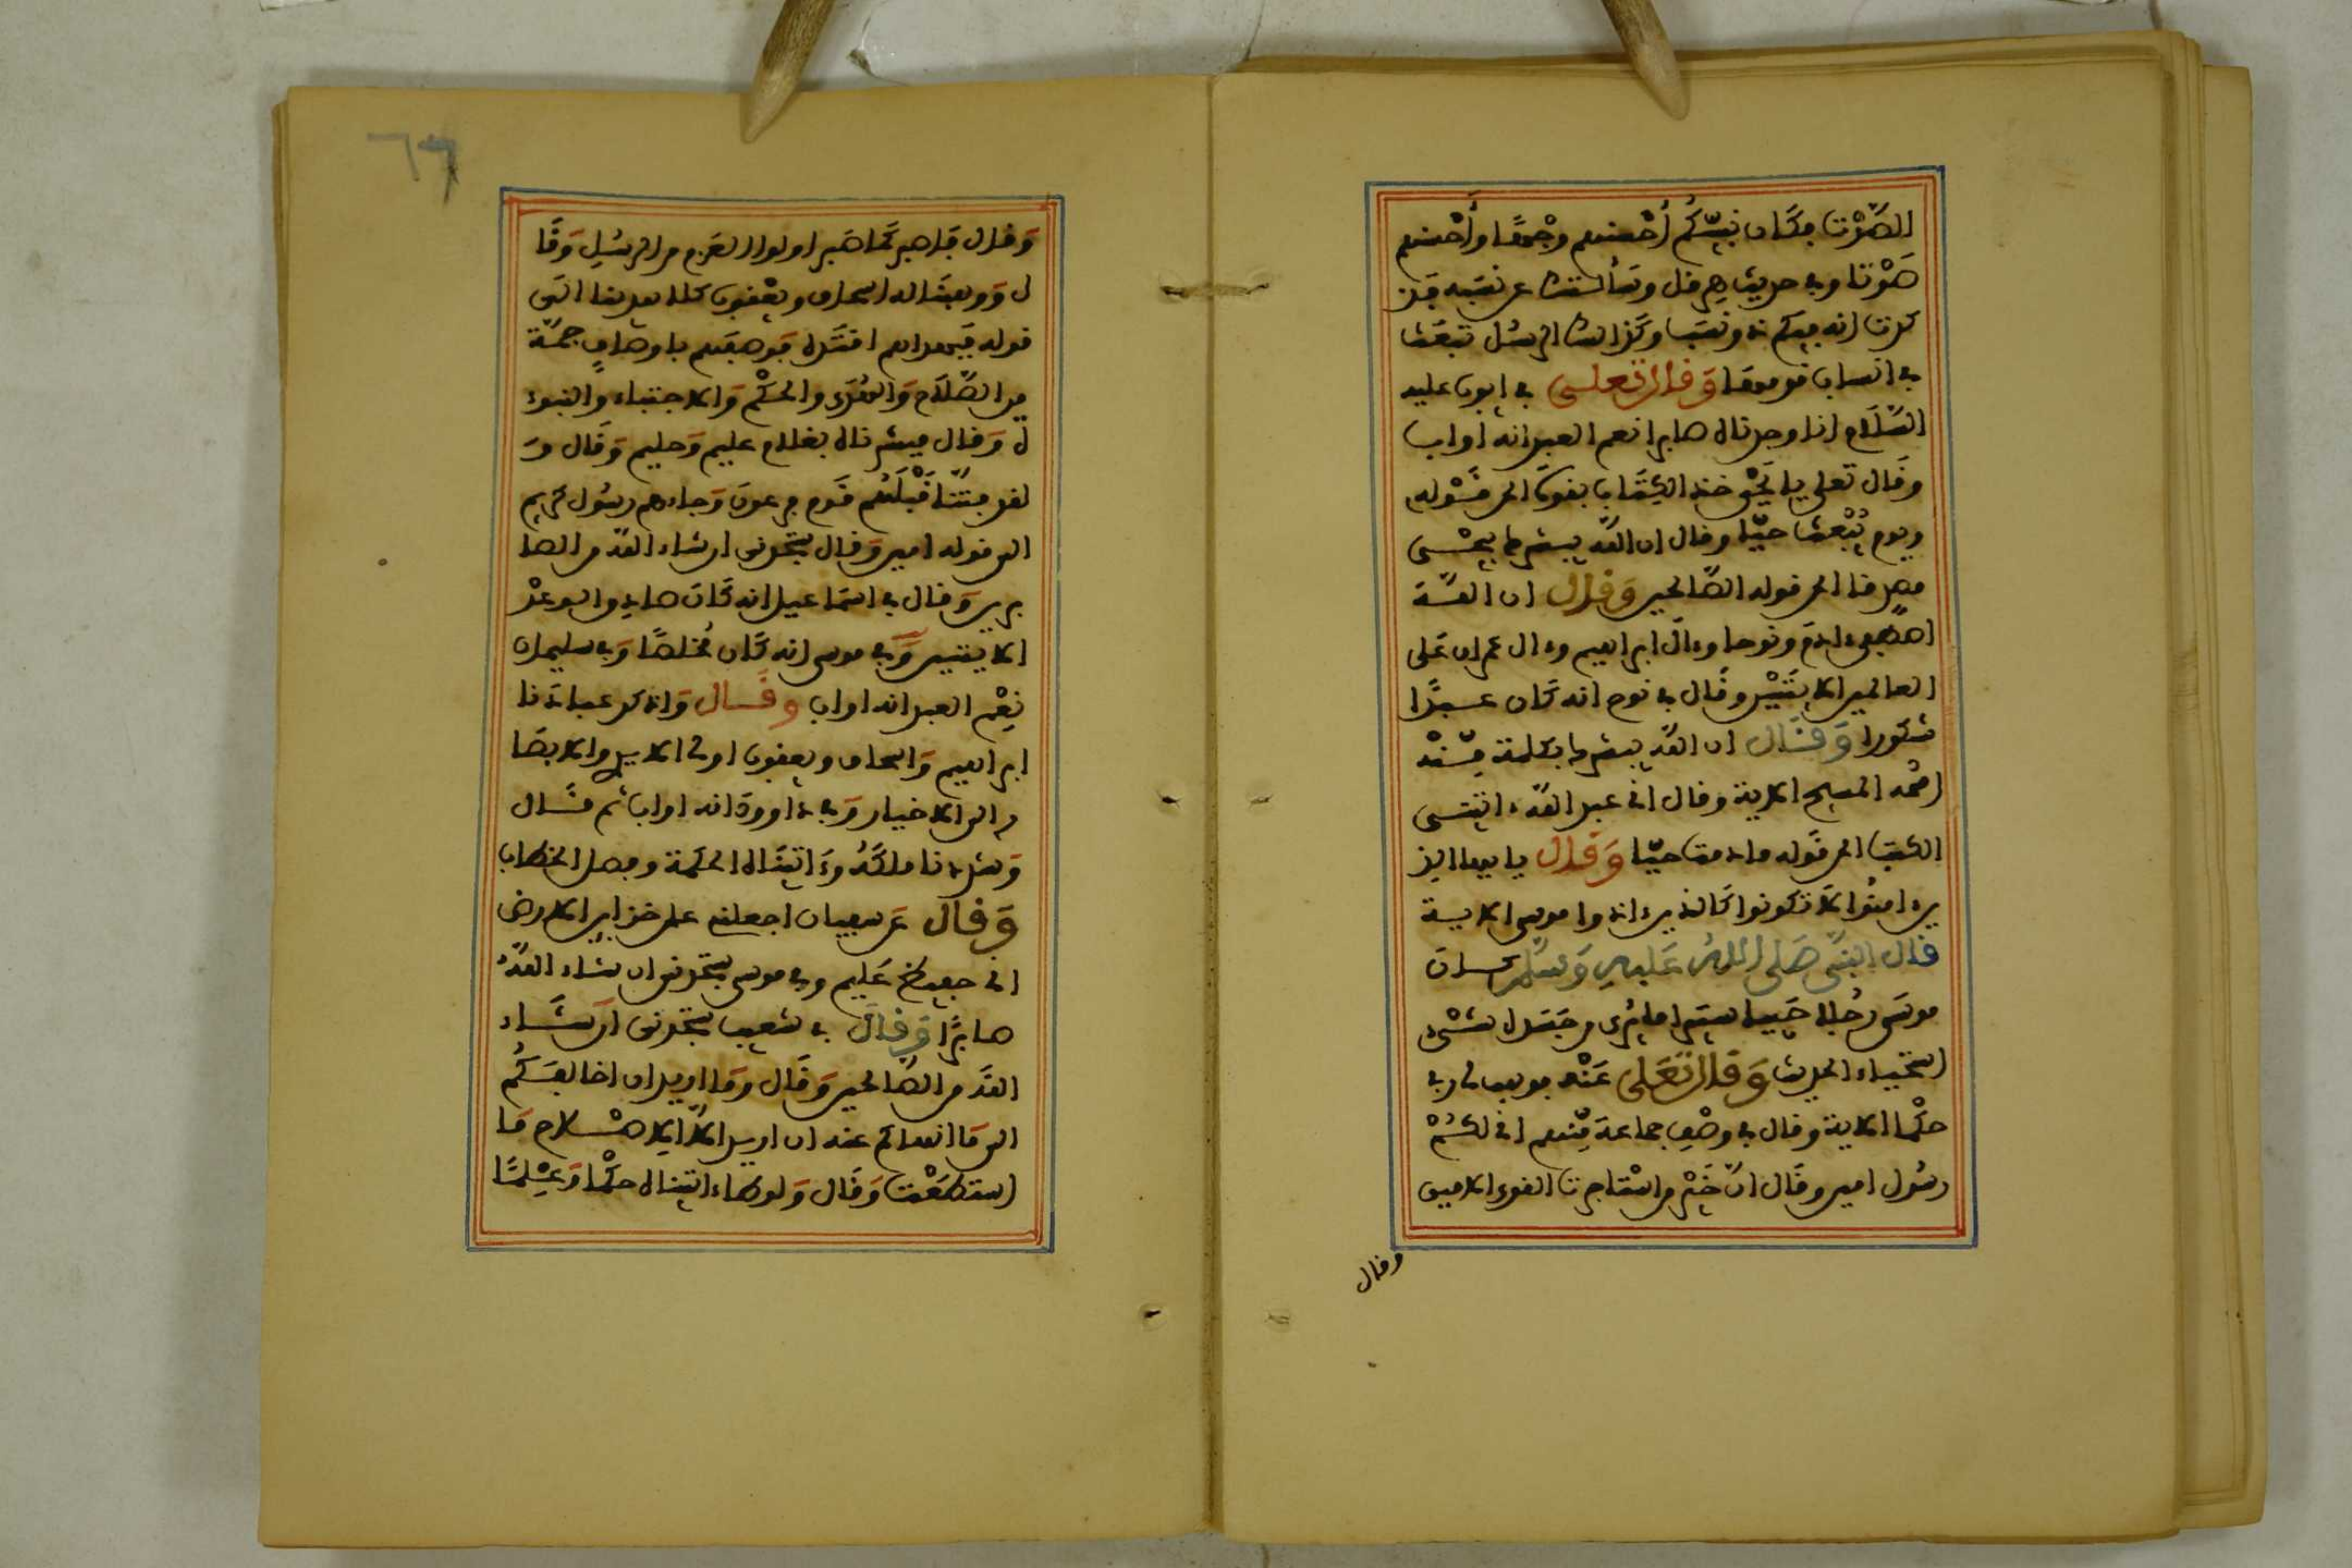 الصَّوْت فكَان نبيّكُم أحْسنهم وجْهًا وأحْسنهم
صَوْتا وفى حديث هِرقل وسَألتك عن نسَبه فذ
كرت انه فيكم ذو نسَب وكذالك الرسُل تبعَث
فى انساب قومها وَقال تعلى فى ايوب عليه
السّلَام انا وجدناه صابرا نعم العبد انه اواب
وقَال تعلى يا يَحْيى خذ الكِتَاب بقوّة الى قَوْله
ويوم يُبْعث حيّا وقال ان اللّه يبشرك بيحْيى
مصدقا الى قوله الصّالحين وَقال ان اللّه
اصطفى ءادمَ ونوحا وءالَ ابراهيم وءال عمران عَلى
العالمين الايتَيْن وقَال فى نوح انه كَان عبدًا
شكورا وَقَال ان اللّه يبشرك بكلمة مّنْه
اسْمه المسيح الاية وقال انى عبد اللّه ءاتينى
الكتٰب الى قَوله ما دمت حيّا وَقال يا ايها الذ
ين ءامنُوا لا تكونوا كَالذين ءاذوا موسى الاية
قال النبيّ صَلى اللهُ عَليهِ وَسلّم كان
موسَى رجُلا حَييا ستيرا ما يُرى من جَسَده شىْء
استحْياء الحديث وَقال تعَلى عَنْه فوهب لى ربى
حكْما الاية وقال فى وصْفِ جماعة مّنهم انى لكُمْ
رسُول امين وقَال انّ خَيْر من اسْتاجرت القوى الامين
وقال
٦٦
وَقال فَاصبر كَما صَبر اولوا العَزم من الرسُلِ وَقَا
ل وَوهبْنَا له اسحاق ويعْقوب كلا هدينا الى
قوله فَبهداهم اقتَده فوصفَهم باوصافٍ جمّة
من الصّلاح وَالهدَى والحكْم وَالاجتباء والنبوء
ة وَقال فبشرناه بغلام عليم وَحليم وَقَال وَ
لقد فتنّا قَبْلَهم قَوم فرعون وَجاءهم رسُول كريم
الى قوله امين وَقال ستجدنى ان شاء اللّه من الصا
برين وَقال فى اسمَاعيل انه كَان صادق الوعْد
الايتين وَفى موسى انه كَان مُخلصًا وَفى سليمان
نِعْم العبد انه اواب وقَال وَاذكر عبادنا
ابراهيم وَاسحاق ويعقوب اولى الايدى والابصَا
ر الى الاخيار وَفى داوود انه اواب ثم قَال
وَشددنا ملكَهُ وءَاتينَاه الحكمة وفصل الخطاب
وَقال عَن يوسف اجعلنى على خزاين الارض
انى حفيظ عَليم وفى موسى ستجدنى ان شاء اللّهُ
صابرًا وَقالَ فى شعيب ستجدنى ان شَاء
اللّه من الصّالحين وَقَال وَمَا اريد ان اخالفَكُم
الى مَا انهاكم عنه ان اريد الاّ الاصْلاح مَا
استطعْت وَقَال وَلوطا ءاتيناه حكْما وَعِلمًا